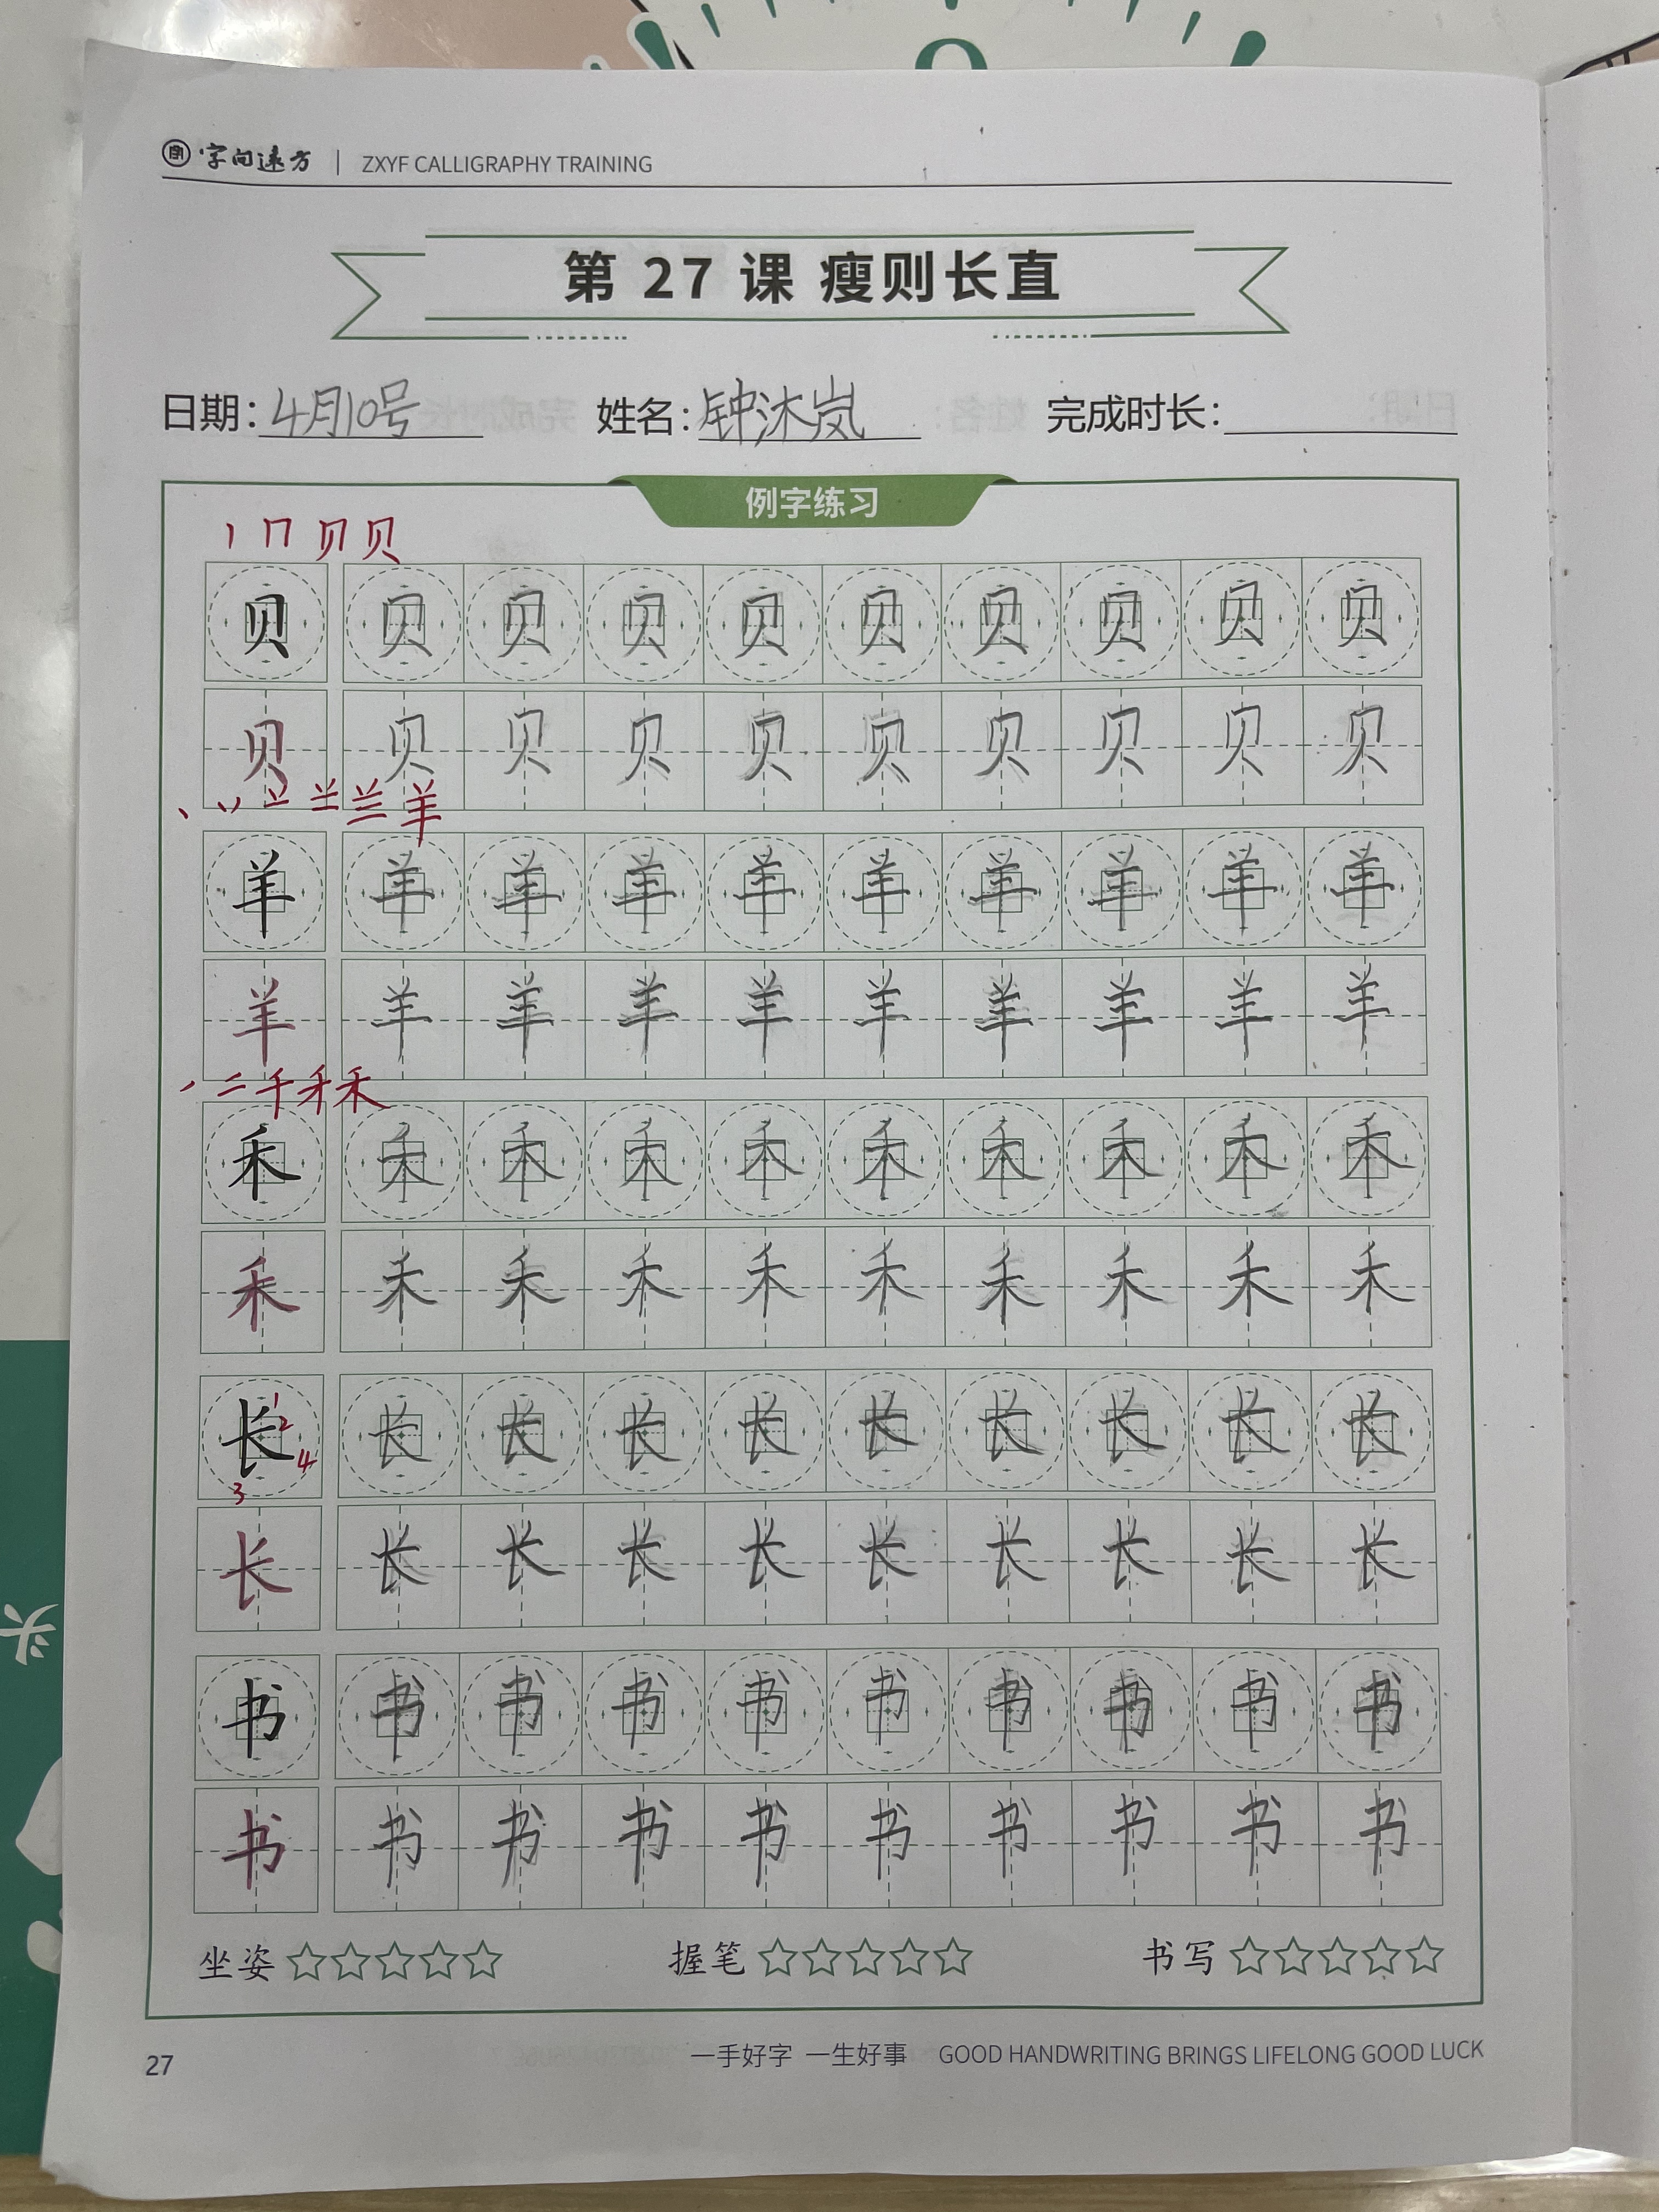 字向远方 | ZXYF CALLIGRAPHY TRAINING
第 27 课 瘦则长直
日期：4月10号 姓名：钟沐岚 完成时长：
例字练习
丨 冂 贝 贝
贝 贝 贝 贝 贝 贝 贝 贝 贝 贝
贝 贝 贝 贝 贝 贝 贝 贝 贝 贝
丶 丷 䒑 兰 羊
羊 羊 羊 羊 羊 羊 羊 羊 羊 羊
羊 羊 羊 羊 羊 羊 羊 羊 羊 羊
丿 二 千 禾 禾
禾 禾 禾 禾 禾 禾 禾 禾 禾 禾
禾 禾 禾 禾 禾 禾 禾 禾 禾 禾
长 1 2 3 4 长 长 长 长 长 长 长 长 长
长 长 长 长 长 长 长 长 长 长
书 书 书 书 书 书 书 书 书 书
书 书 书 书 书 书 书 书 书 书
坐姿 ☆☆☆☆☆ 握笔 ☆☆☆☆☆ 书写 ☆☆☆☆☆
27 一手好字 一生好事 GOOD HANDWRITING BRINGS LIFELONG GOOD LUCK
头